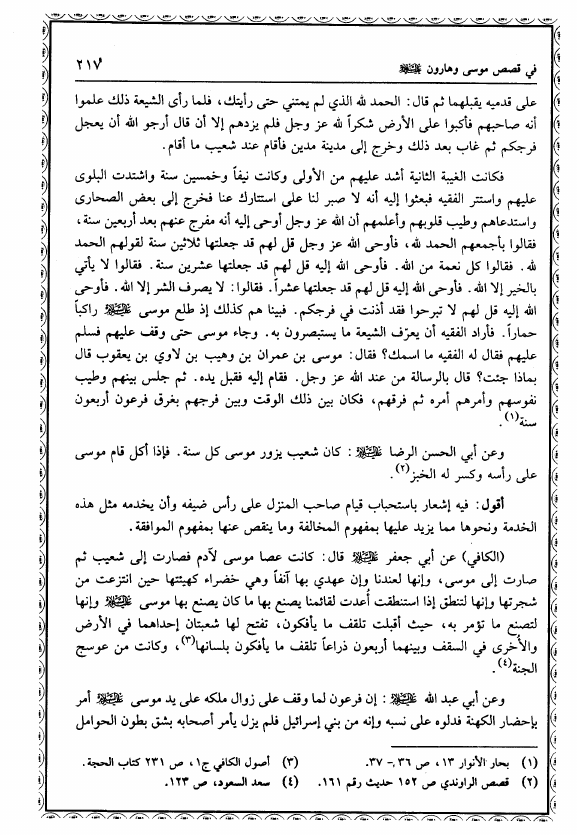 في قصص موسى وهارون عليهما السلام ٢١٧
على قدميه يقبلهما ثم قال: الحمد لله الذي لم يمتني حتى رأيتك، فلما رأى الشيعة ذلك علموا
أنه صاحبهم فأكبوا على الأرض شكراً لله عز وجل فلم يزدهم إلا أن قال أرجو الله أن يعجل
فرجكم ثم غاب بعد ذلك وخرج إلى مدينة مدين فأقام عند شعيب ما أقام.
فكانت الغيبة الثانية أشد عليهم من الأولى وكانت نيفاً وخمسين سنة واشتدت البلوى
عليهم واستتر الفقيه فبعثوا إليه أنه لا صبر لنا على استتارك عنا فخرج إلى بعض الصحارى
واستدعاهم وطيب قلوبهم وأعلمهم أن الله عز وجل أوحى إليه أنه مفرج عنهم بعد أربعين سنة،
فقالوا بأجمعهم الحمد لله، فأوحى الله عز وجل قل لهم قد جعلتها ثلاثين سنة لقولهم الحمد
لله. فقالوا كل نعمة من الله. فأوحى الله إليه قل لهم قد جعلتها عشرين سنة. فقالوا لا يأتي
بالخير إلا الله. فأوحى الله إليه قل لهم قد جعلتها عشراً. فقالوا: لا يصرف الشر إلا الله. فأوحى
الله إليه قل لهم لا تبرحوا فقد أذنت في فرجكم. فبينا هم كذلك إذ طلع موسى عليه السلام راكباً
حماراً. فأراد الفقيه أن يعرّف الشيعة ما يستبصرون به. وجاء موسى حتى وقف عليهم فسلم
عليهم فقال له الفقيه ما اسمك؟ فقال: موسى بن عمران بن وهيب بن لاوي بن يعقوب قال
بماذا جئت؟ قال بالرسالة من عند الله عز وجل. فقام إليه فقبل يده. ثم جلس بينهم وطيب
نفوسهم وأمرهم أمره ثم فرقهم، فكان بين ذلك الوقت وبين فرجهم بغرق فرعون أربعون
سنة(١).
وعن أبي الحسن الرضا عليه السلام: كان شعيب يزور موسى كل سنة. فإذا أكل قام موسى
على رأسه وكسر له الخبز(٢).
أقول: فيه إشعار باستحباب قيام صاحب المنزل على رأس ضيفه وأن يخدمه مثل هذه
الخدمة ونحوها مما يزيد عليها بمفهوم المخالفة وما ينقص عنها بمفهوم الموافقة.
(الكافي) عن أبي جعفر عليه السلام قال: كانت عصا موسى لآدم فصارت إلى شعيب ثم
صارت إلى موسى، وإنها لعندنا وإن عهدي بها آنفاً وهي خضراء كهيئتها حين انتزعت من
شجرتها وإنها لتنطق إذا استنطقت أُعدت لقائمنا يصنع بها ما كان يصنع بها موسى عليه السلام وإنها
لتصنع ما تؤمر به، حيث أقبلت تلقف ما يأفكون، تفتح لها شعبتان إحداهما في الأرض
والأُخرى في السقف وبينهما أربعون ذراعاً تلقف ما يأفكون بلسانها(٣)، وكانت من عوسج
الجنة(٤).
وعن أبي عبد الله عليه السلام: إن فرعون لما وقف على زوال ملكه على يد موسى عليه السلام أمر
بإحضار الكهنة فدلوه على نسبه وإنه من بني إسرائيل فلم يزل يأمر أصحابه بشق بطون الحوامل
(١) بحار الأنوار ١٣، ص ٣٦ - ٣٧.
(٢) قصص الراوندي ص ١٥٢ حديث رقم ١٦١.
(٣) أصول الكافي ج١، ص ٢٣١ كتاب الحجة.
(٤) سعد السعود، ص ١٢٣.